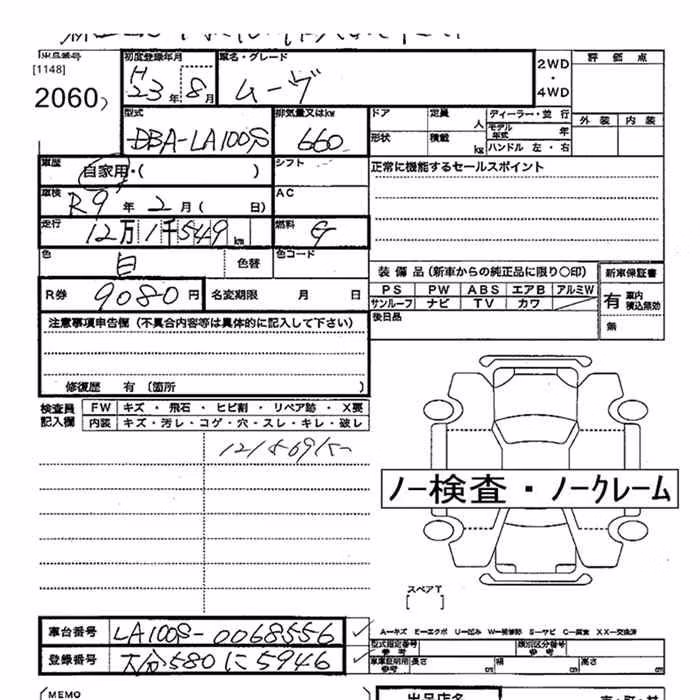 出品番号
[1148]
2060
初度登録年月
H
23年8月
車名・グレード
ムーヴ
2WD
・
4WD
評価点
外装 内装
型式
DBA-LA100S
排気量又はkw
660
ドア 定員 人
形状 積載 kg
ディーラー・並行
モデル年式 年
ハンドル 左・右
車歴
自家用・( )
シフト
正常に機能するセールスポイント
車検
R9年2月( 日)
AC
走行
12万1千549km
燃料
G
色
白
色替
色コード
R券 9080円
名変期限 月 日
装備品(新車からの純正品に限り○印)
PS PW ABS エアB アルミW
サンルーフ ナビ TV カワ
新車保証書
有 車内積込無効
無
後日品
注意事項申告欄(不具合内容等は具体的に記入して下さい)
修復歴 有 (箇所 )
検査員記入欄
FW キズ・飛石・ヒビ割・リペア跡・X要
内装 キズ・汚レ・コゲ・穴・スレ・キレ・破レ
ノー検査・ノークレーム
スペアT
[ ]
車台番号 LA100S-0068556
登録番号 大分580に5946
A−キズ E−エクボ U−凹み W−補修跡 S−サビ C−腐食 XX−交換済
型式指定番号 参考
類別区分番号 参考
車庫証明用参考 長さ cm 幅 cm 高さ cm
MEMO
出品店名
市・町・村